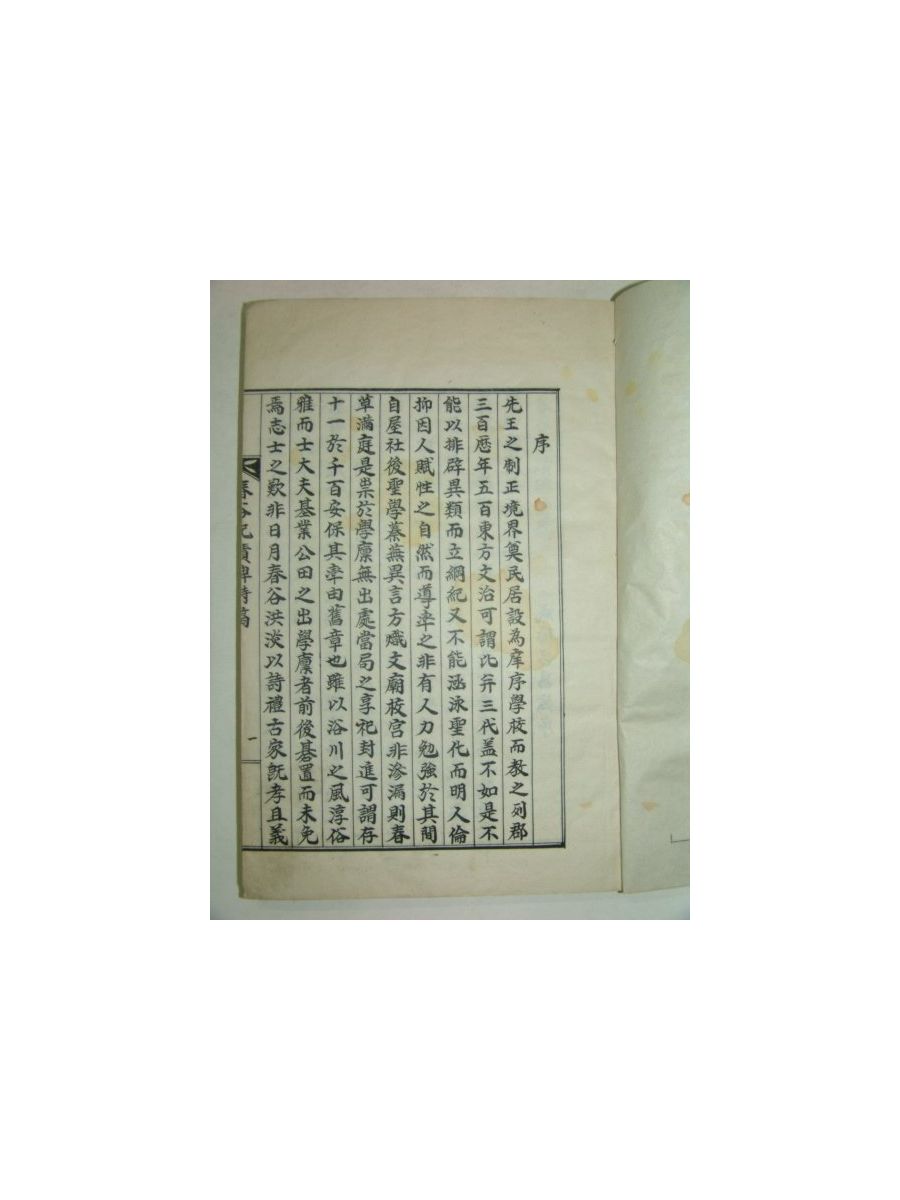 序
先王之制正境界奠民居設為庠序學校而教之列郡
三百歷年五百東方文治可謂比弁三代盖不如是不
能以排辟異類而立綱紀又不能涵泳聖化而明人倫
抑因人賦性之自然而導率之非有人力勉強於其間
自屋社後聖學蓁蕪異言方熾文廟校宮非滲漏則春
草滿庭是祟於學廩無出處當局之享祀封進可謂存
十一於千百安保其率由舊章也雖以浴川之風淳俗
雅而士大夫基業公田之出學廩者前後碁置而未免
焉志士之歎非日月春谷洪淡以詩禮古家旣孝且義
春谷記蹟碑詩稿
一